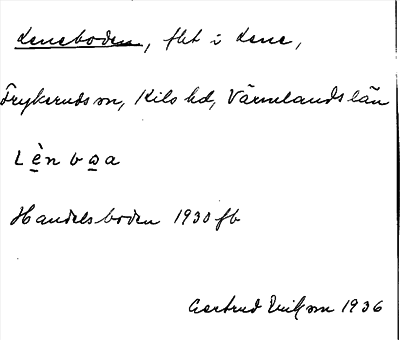 Leneboden, fht i Lene,
Frykeruds sn, Kils hd, Värmlands län
L è n b ω a
Handelsboden 1930 fb
Gertrud Eriksson 1936